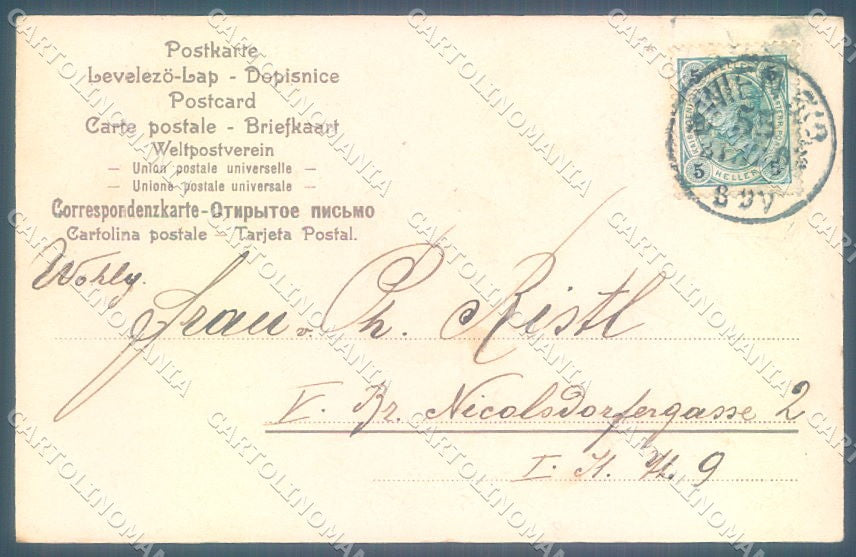 Postkarte
Levelezö-Lap - Dopisnice
Postcard
Carte postale - Briefkaart
Weltpostverein
— Union postale universelle —
— Unione postale universale —
Correspondenzkarte-Открытое письмо
Cartolina postale — Tarjeta Postal.
5 5
5 HELLER 5
Wohlg.
Frau v. Ch. Ristl
V. Bz. Nicolsdorfergasse 2
I. St. Th. 9
CARTOLINOMANIA